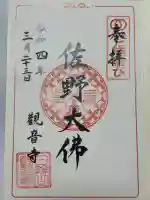 奉拝
佐野大佛
令和四年
三月二十三日
觀音寺